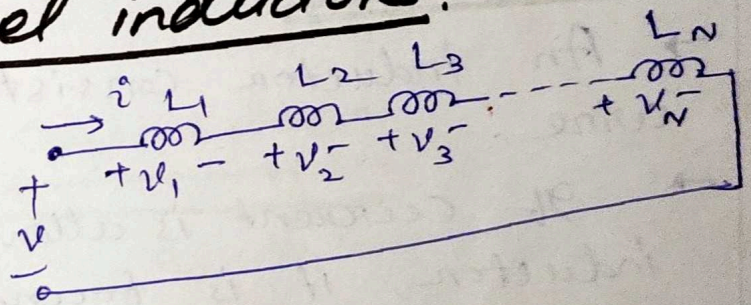 el inductors.
i L₁ L₂ L₃ L_N
+ v₁ - + v₂ - + v₃ - + v_N -
+
v
-